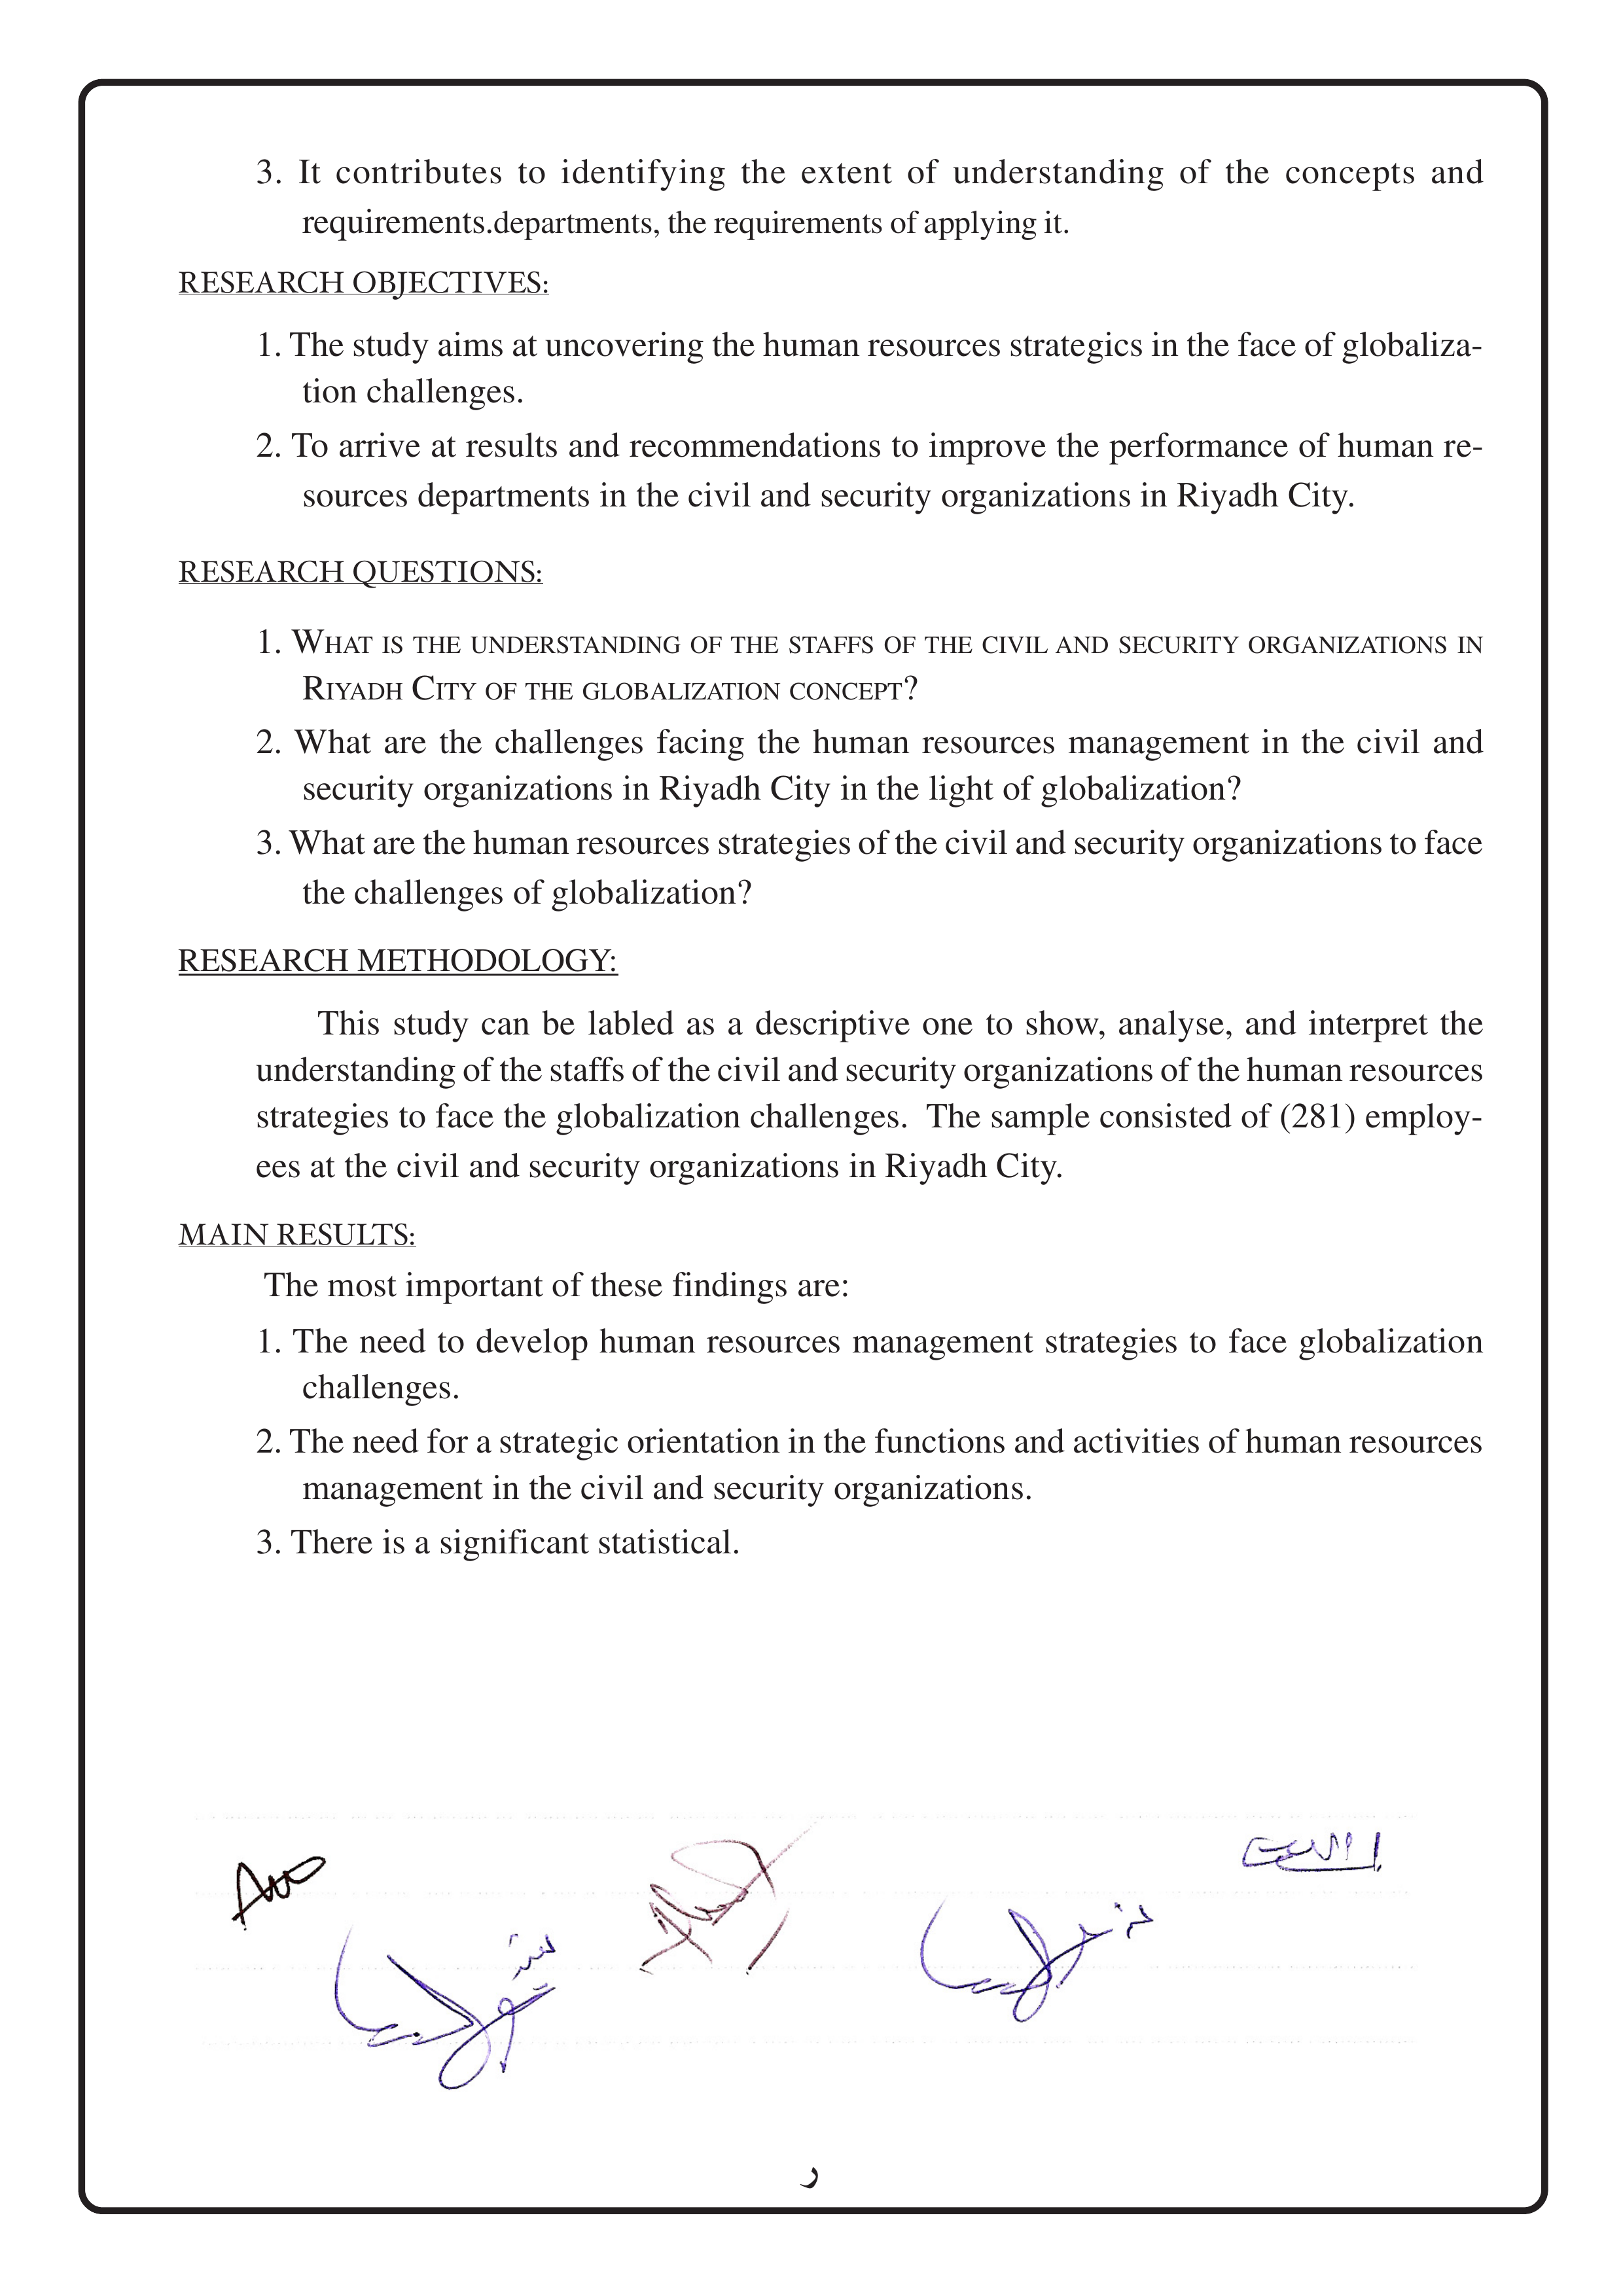 3. It contributes to identifying the extent of understanding of the concepts and
requirements.departments, the requirements of applying it.
RESEARCH OBJECTIVES:
1. The study aims at uncovering the human resources strategics in the face of globaliza-
tion challenges.
2. To arrive at results and recommendations to improve the performance of human re-
sources departments in the civil and security organizations in Riyadh City.
RESEARCH QUESTIONS:
1. WHAT IS THE UNDERSTANDING OF THE STAFFS OF THE CIVIL AND SECURITY ORGANIZATIONS IN
RIYADH CITY OF THE GLOBALIZATION CONCEPT?
2. What are the challenges facing the human resources management in the civil and
security organizations in Riyadh City in the light of globalization?
3. What are the human resources strategies of the civil and security organizations to face
the challenges of globalization?
RESEARCH METHODOLOGY:
This study can be labled as a descriptive one to show, analyse, and interpret the
understanding of the staffs of the civil and security organizations of the human resources
strategies to face the globalization challenges. The sample consisted of (281) employ-
ees at the civil and security organizations in Riyadh City.
MAIN RESULTS:
The most important of these findings are:
1. The need to develop human resources management strategies to face globalization
challenges.
2. The need for a strategic orientation in the functions and activities of human resources
management in the civil and security organizations.
3. There is a significant statistical.
ر